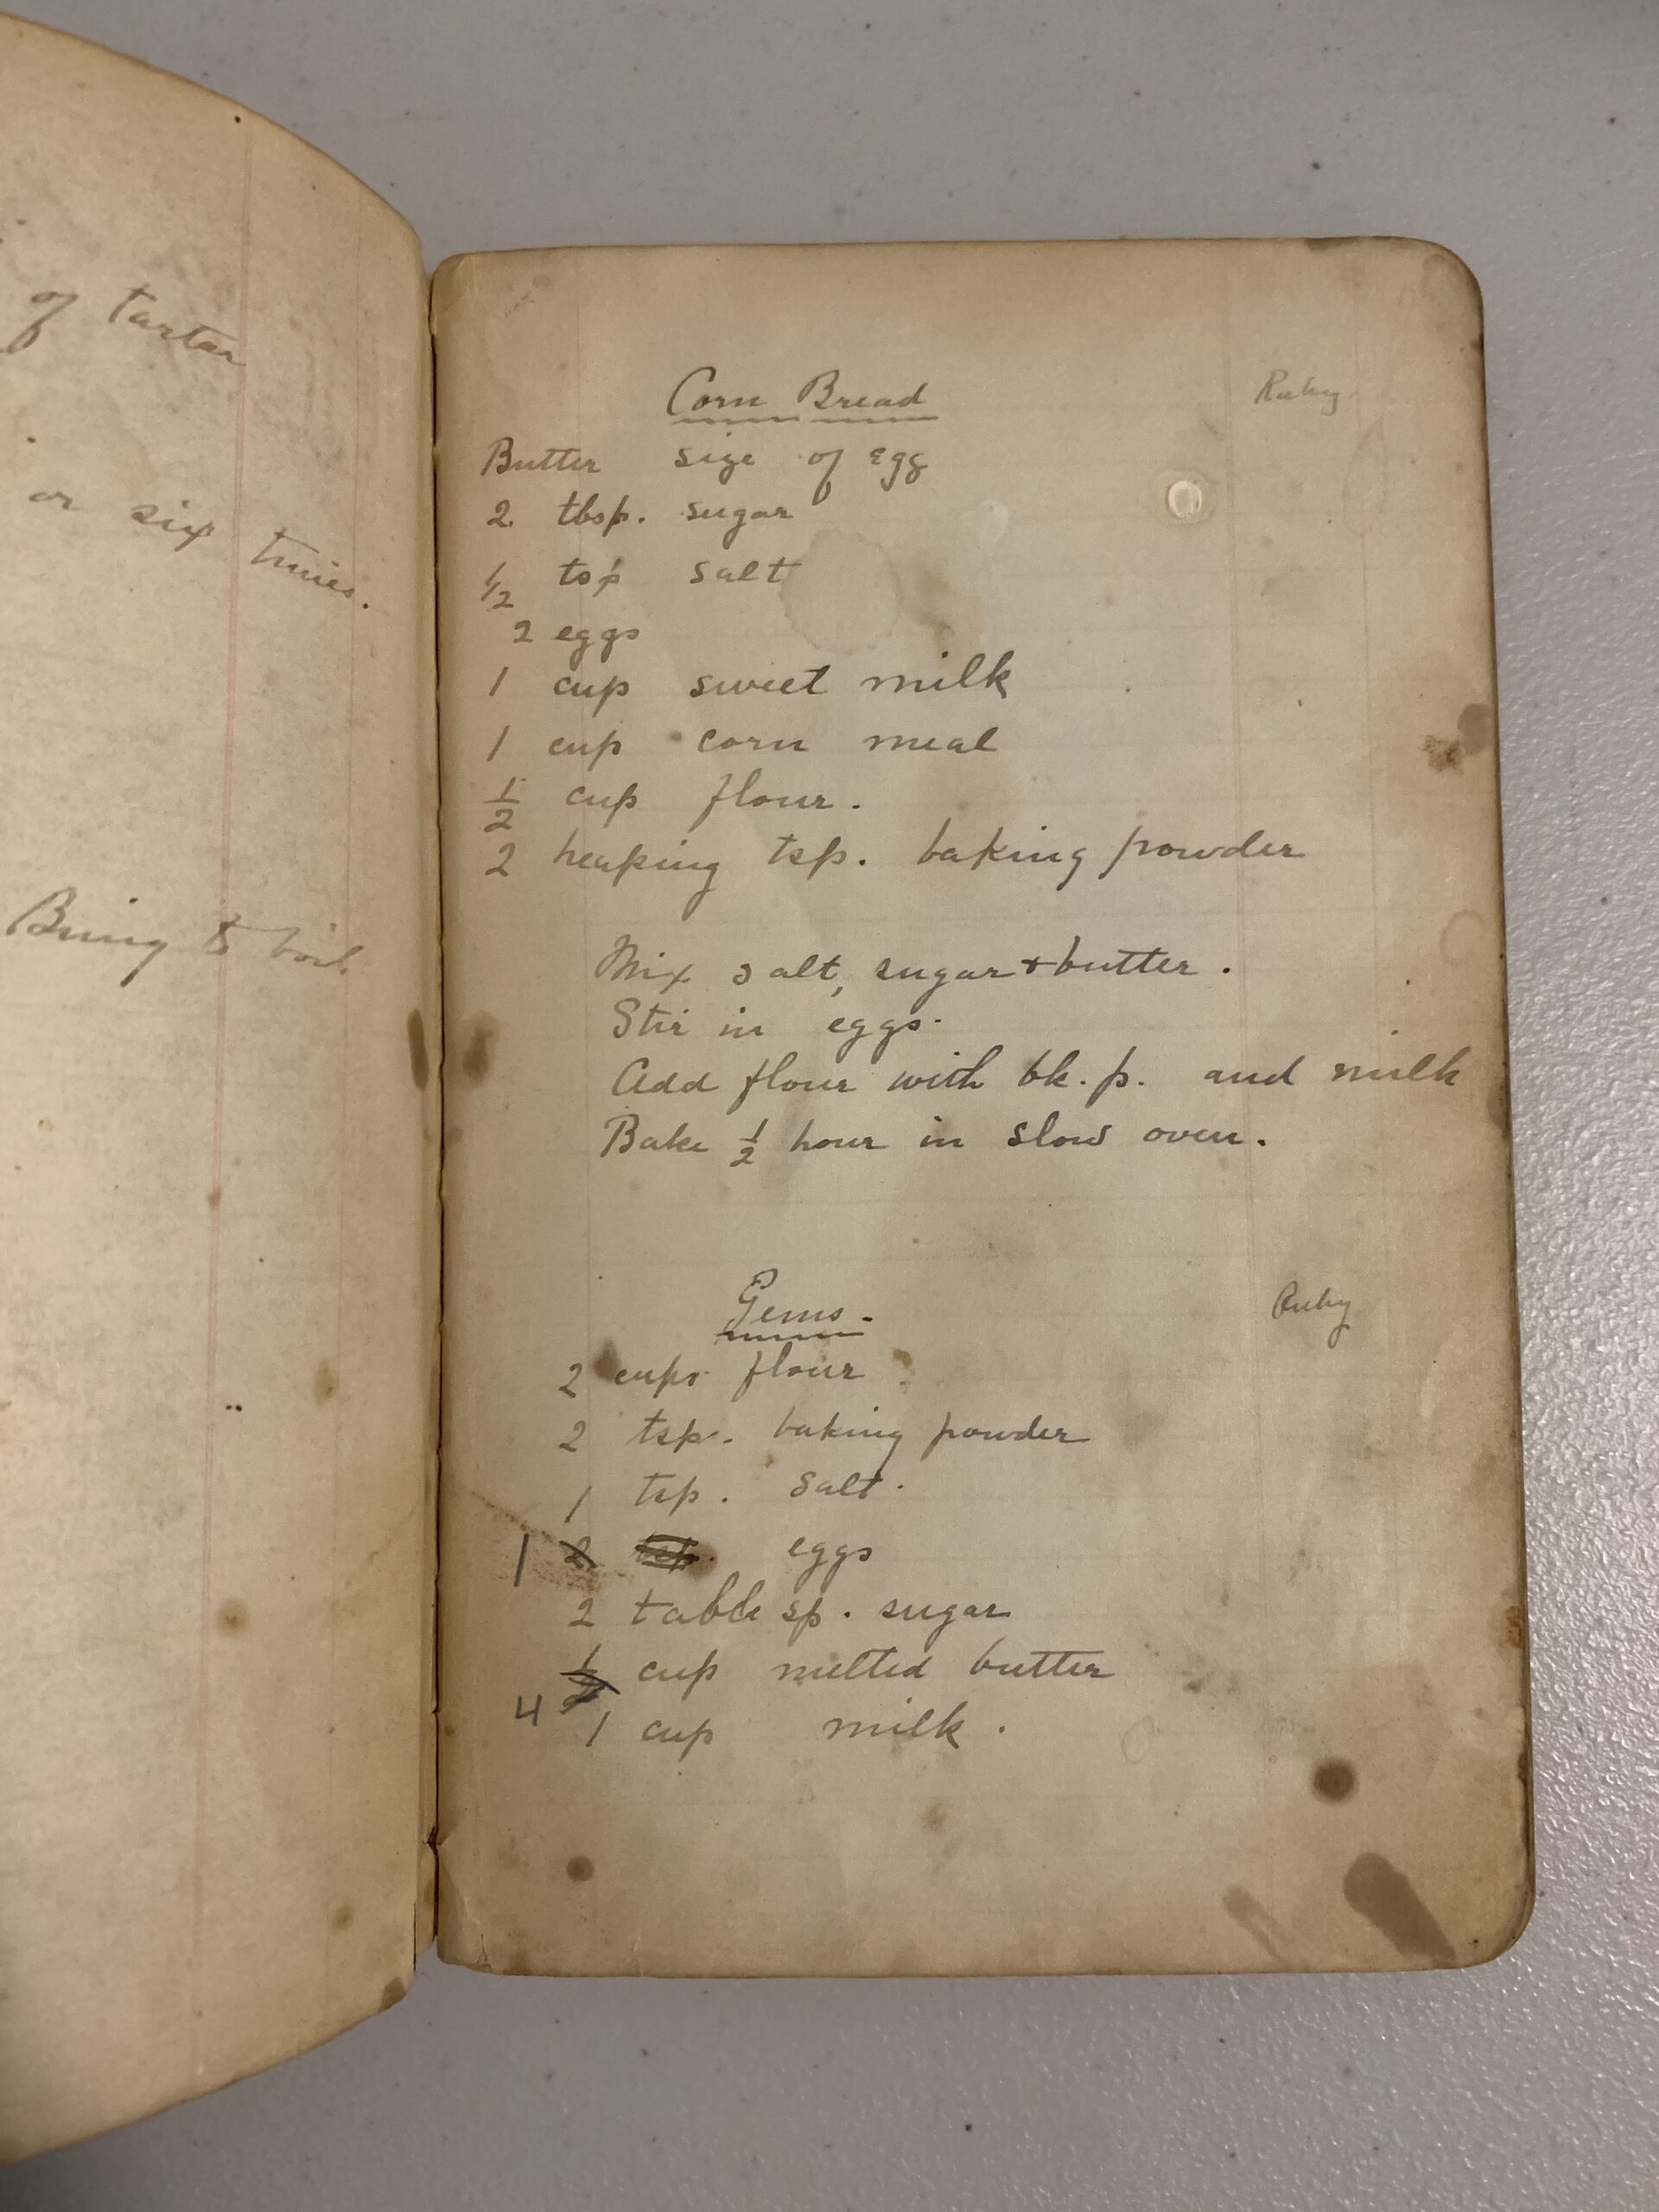 of tartar
or six times.
Bring to boil
Corn Bread Ruby.
Butter size of egg
2 tbsp. sugar
1/2 tsp salt
2 eggs
1 cup sweet milk
1 cup corn meal
1/2 cup flour.
2 heaping tsp. baking powder
Mix salt, sugar + butter.
Stir in eggs.
Add flour with bk. p. and milk
Bake 1/2 hour in slow oven.
Gems. Ruby
2 cups flour
2 tsp. baking powder
1 tsp. salt.
1 2 tsp. eggs
2 table sp. sugar
1/2 cup melted butter
4
1 cup milk.